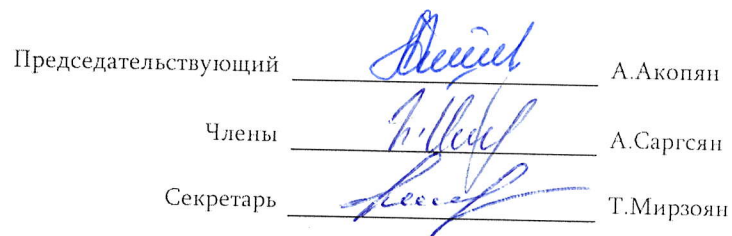 Председательствующий А.Акопян
Члены А.Саргсян
Секретарь Т.Мирзоян